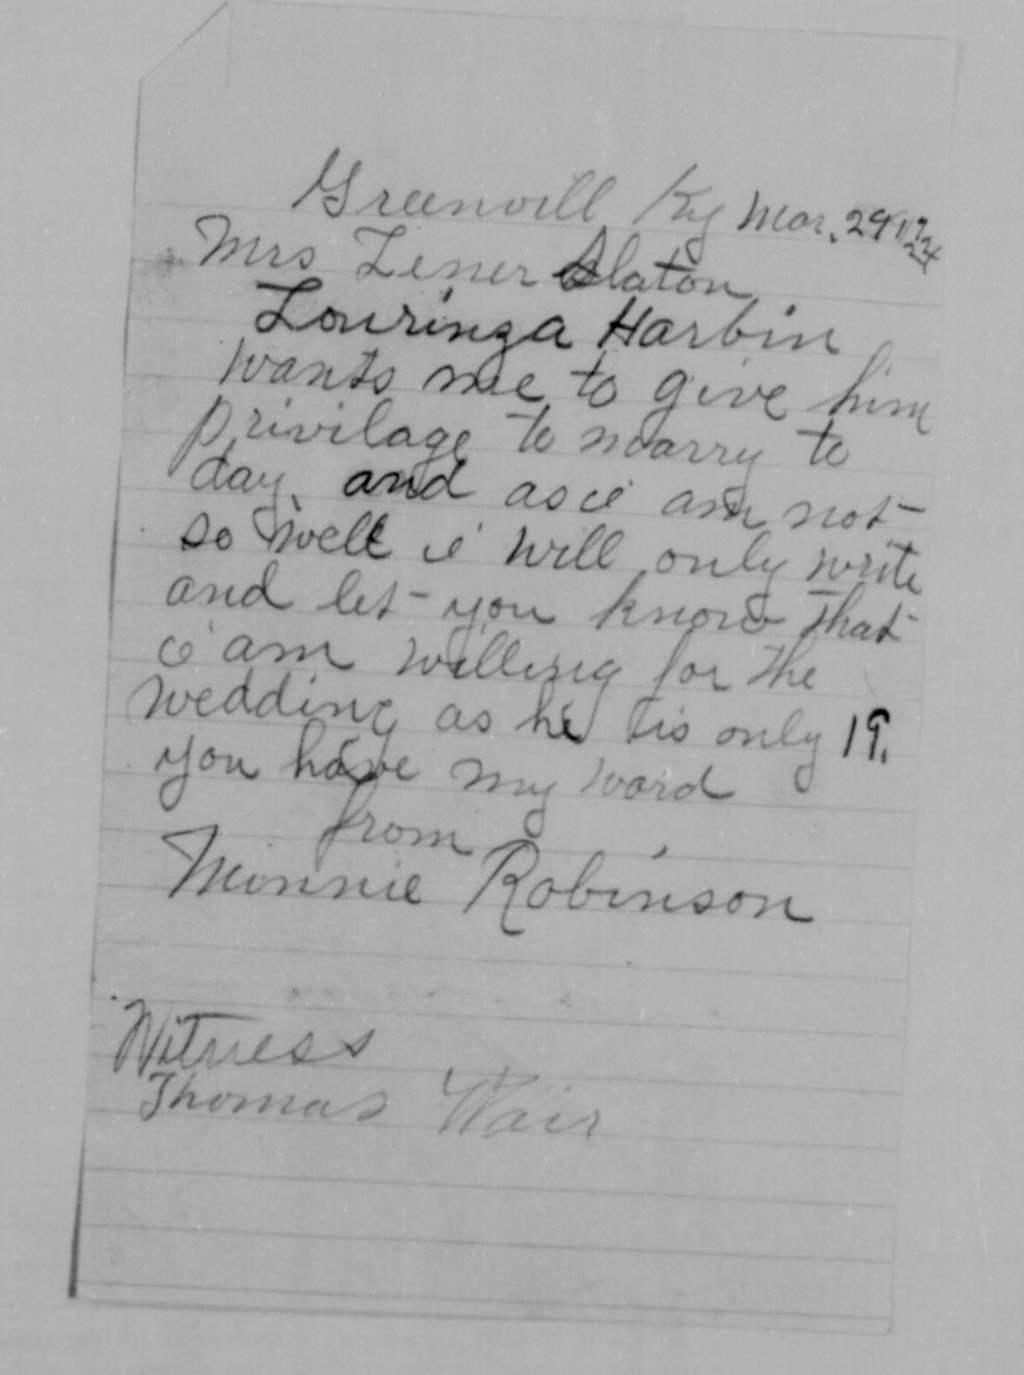 Greenvill Ky Mar. 29 1924
Mrs Lener Slaton
Louringa Harbin
wants me to give him
privilage to marry to
day, and as i am not
so well i will only write
and let you know that
i am willing for the
wedding as he tis only 19.
you have my word
from
Minnie Robinson
Witness
Thomas Wair